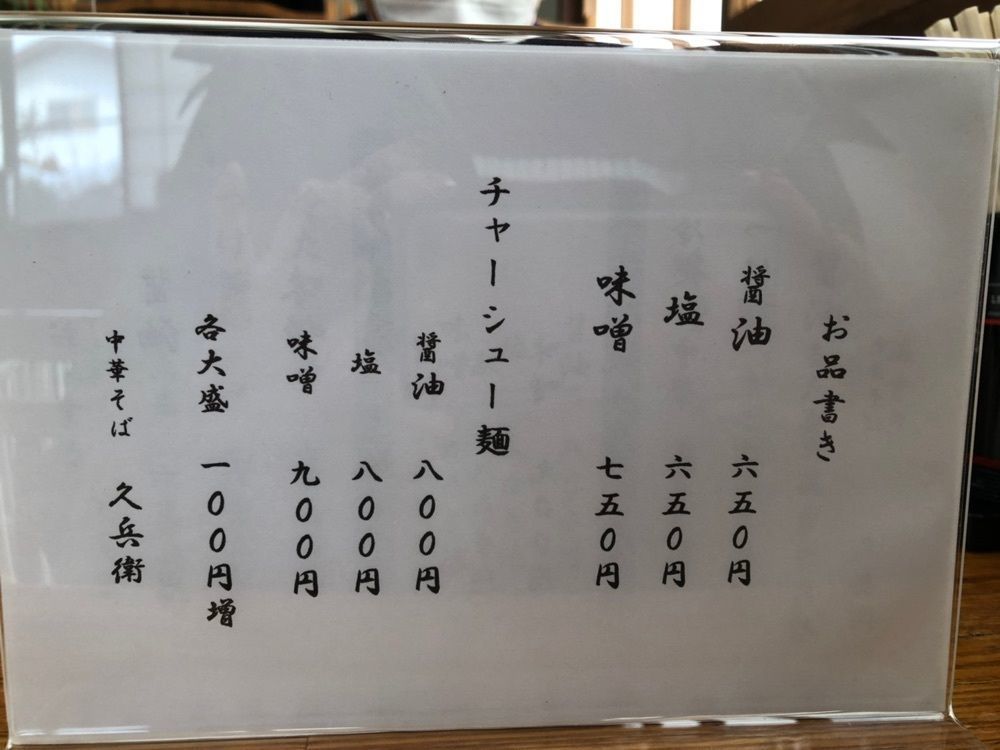 お品書き
醤油 六五〇円
塩 六五〇円
味噌 七五〇円
チャーシュー麺
醤油 八〇〇円
塩 八〇〇円
味噌 九〇〇円
各大盛 一〇〇円増
中華そば 久兵衛